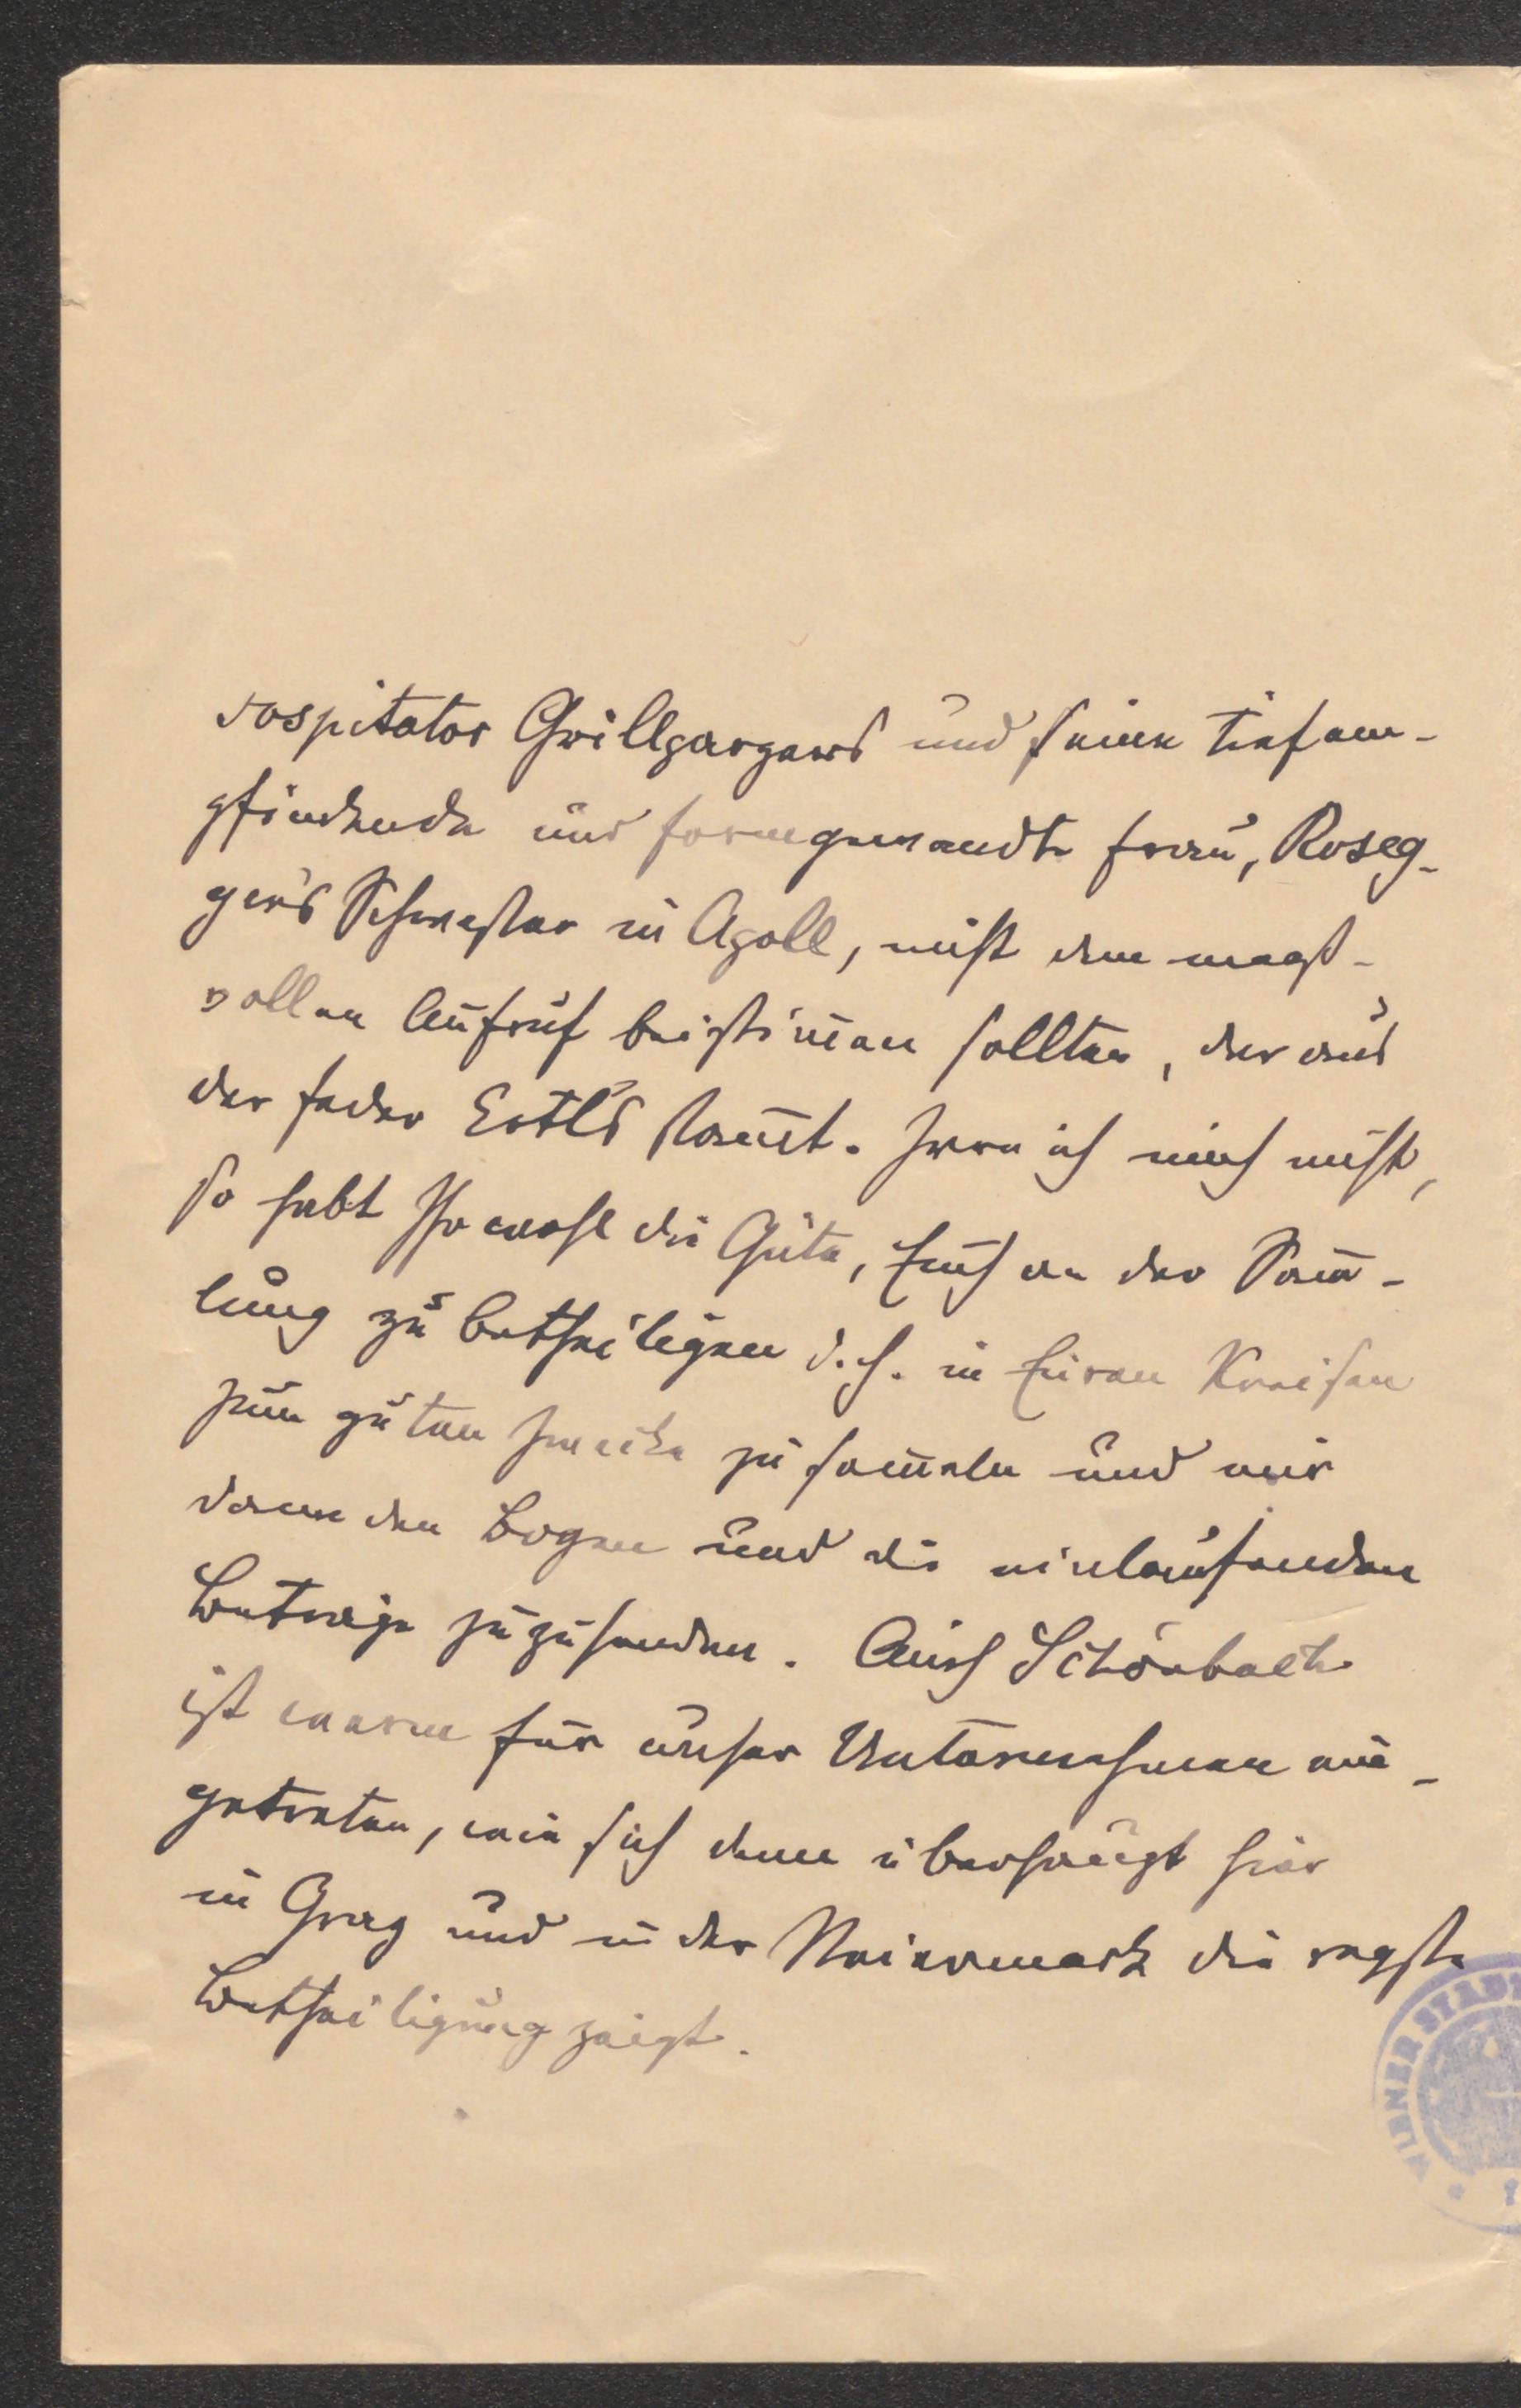 sospitator Grillparzers und seine tiefem-
pfindende und formgewandte Frau, Roseg-
gers Schwester in Apoll, nicht dem maß-
vollen Aufruf beistim̅en sollten, der aus
der Feder Ertls stam̅t. Irre ich mich nicht,
so habt Ihr wohl die Güte, Euch an der Sam̅-
lung zu betheiligen d. h. in Euren Kreisen
zum guten Zwecke zu sam̅eln und mir
dann den Bogen und die einlaufenden
Beträge zuzusenden. Auch Schönbach
ist warm für unser Unternehmen ein-
getreten, wie sich denn überhaupt hier
in Graz und in der Steiermark die regste
Betheiligung zeigt.
WIENER STADT